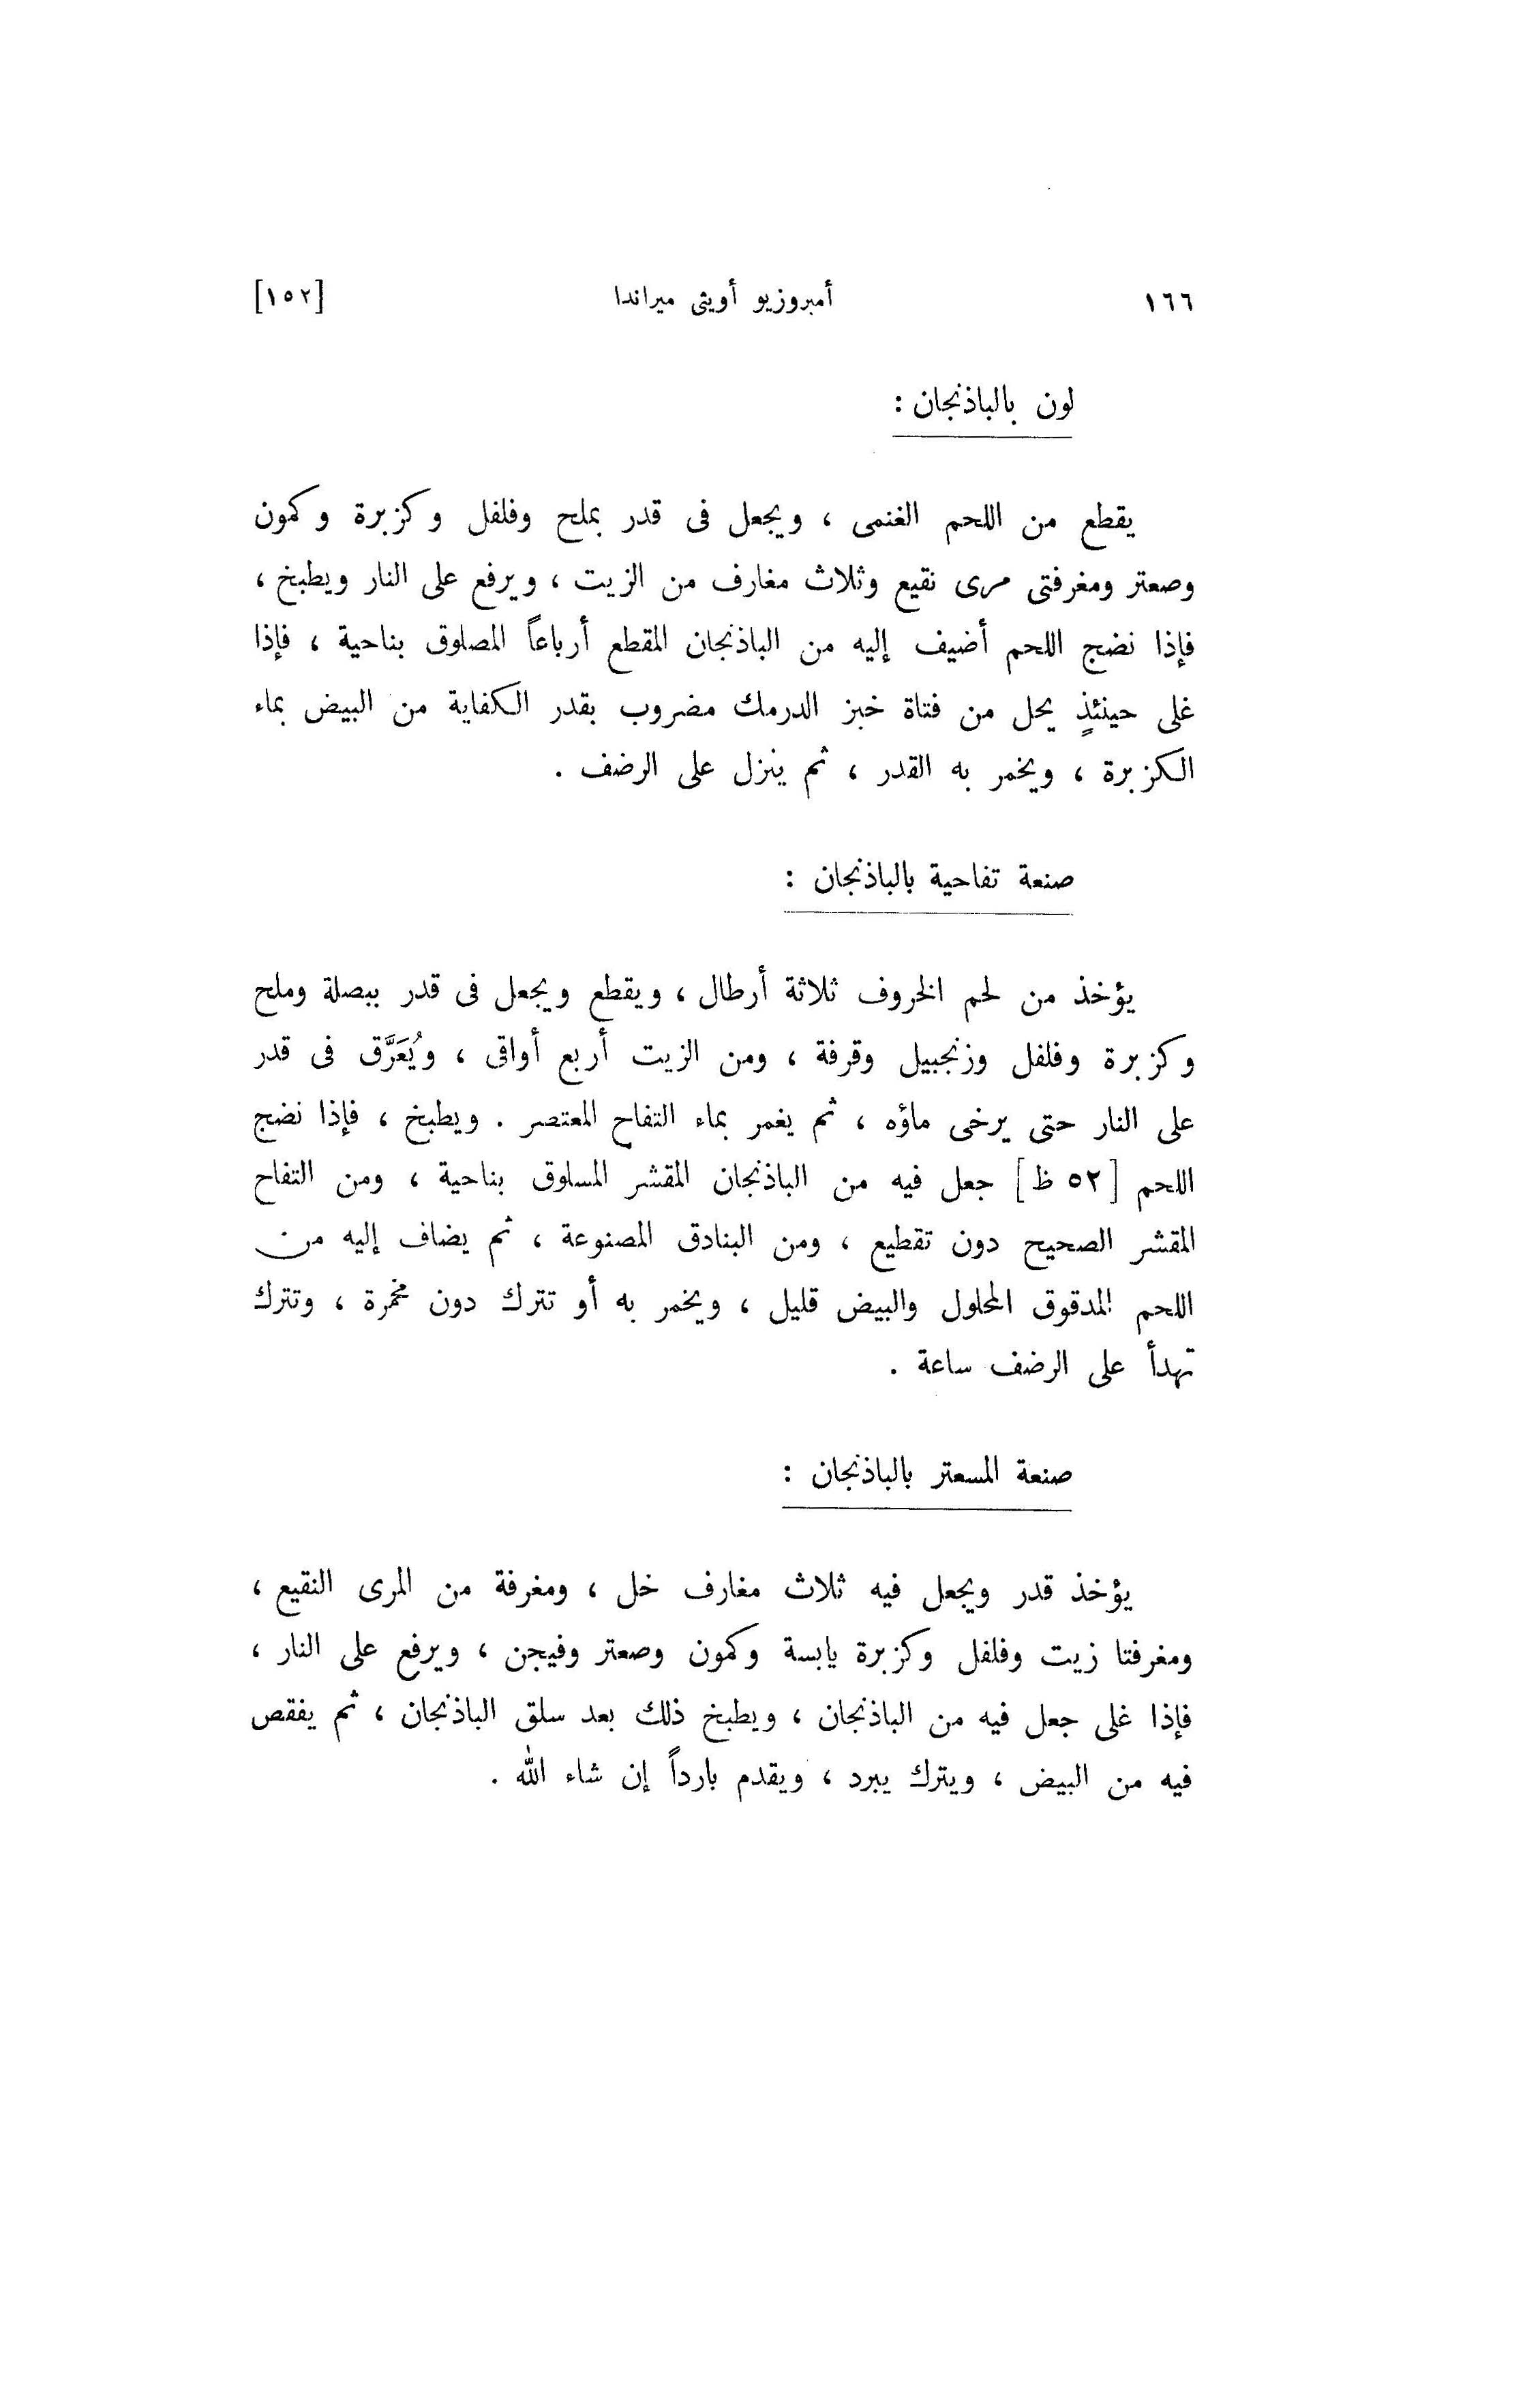 ١٦٦ أمبروزيو أويثى ميراندا [١٥٢]
لون بالباذنجان :
يقطع من اللحم الغنمى ، ويجعل فى قدر بملح وفلفل وكزبرة وكمون
وصعتر ومغرفتى مرى نقيع وثلاث مغارف من الزيت ، ويرفع على النار ويطبخ ،
فإذا نضج اللحم أضيف إليه من الباذنجان المقطع أرباعاً المصلوق بناحية ، فإذا
غلى حينئذٍ يحل من فتاة خبز الدرمك مضروب بقدر الكفاية من البيض بماء
الكزبرة ، ويخمر به القدر ، ثم ينزل على الرضف .
صنعة تفاحية بالباذنجان :
يؤخذ من لحم الخروف ثلاثة أرطال ، ويقطع ويجعل فى قدر ببصلة وملح
وكزبرة وفلفل وزنجبيل وقرفة ، ومن الزيت أربع أواقى ، ويُعَرَّق فى قدر
على النار حتى يرخى ماؤه ، ثم يغمر بماء التفاح المعتصر . ويطبخ ، فإذا نضج
اللحم [٥٢ ظ] جعل فيه من الباذنجان المقشر المسلوق بناحية ، ومن التفاح
المقشر الصحيح دون تقطيع ، ومن البنادق المصنوعة ، ثم يضاف إليه من
اللحم المدقوق المحلول والبيض قليل ، ويخمر به أو تترك دون مخمرة ، وتترك
تهدأ على الرضف ساعة .
صنعة المسعتر بالباذنجان :
يؤخذ قدر ويجعل فيه ثلاث مغارف خل ، ومغرفة من المرى النقيع ،
ومغرفتا زيت وفلفل وكزبرة يابسة وكمون وصعتر وفيجن ، ويرفع على النار ،
فإذا غلى جعل فيه من الباذنجان ، ويطبخ ذلك بعد سلق الباذنجان ، ثم يفقص
فيه من البيض ، ويترك يبرد ، ويقدم بارداً إن شاء الله .